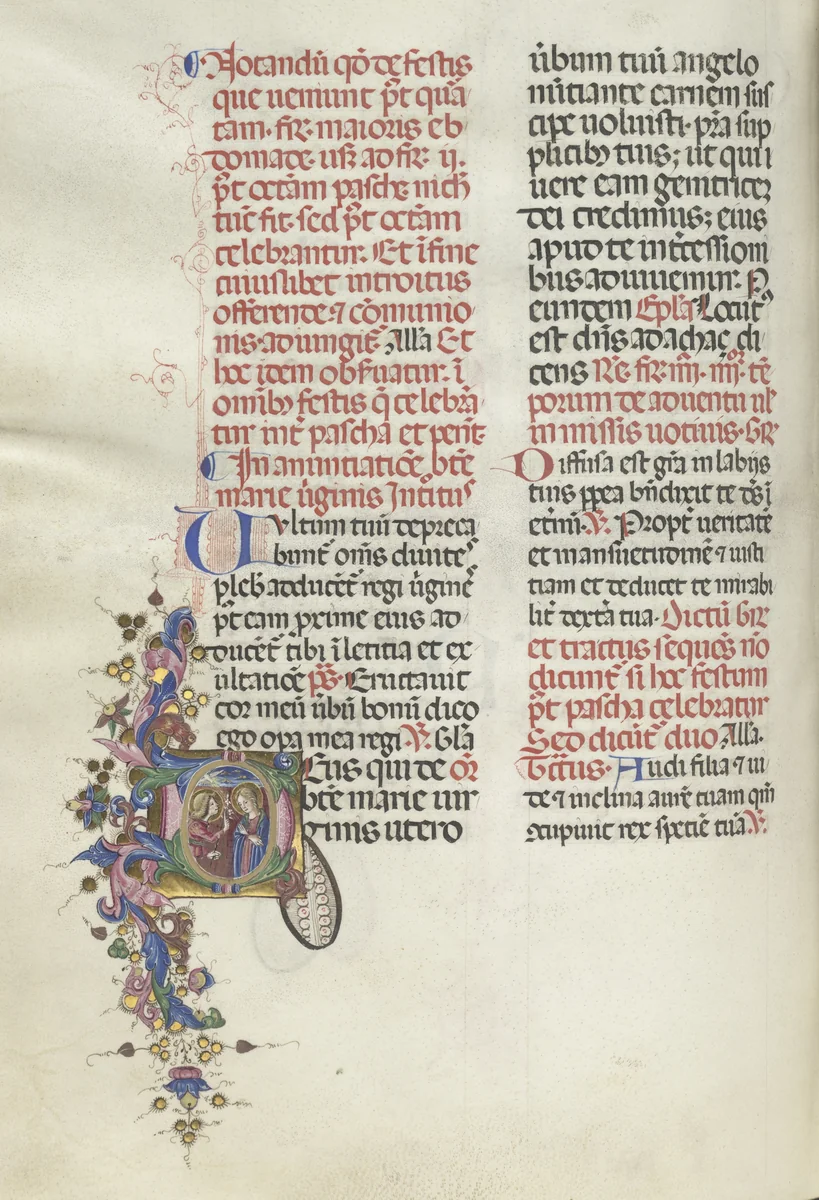 Notandũ qđ de festis
que ueniunt p̃t quã
tam · fir̃ · maioris eb
domade · usq̃ ad fir̃ · ij.
p̃t octãm pasche nich̃
tũc fit · sed p̃t octãm
celebrantur. Et ĩ fine
cuiuslibet introitus
offerende · ⁊ cõmunio
nis · adiungit̃ Alla Et
hoc idem obſuatur · ĩ
omĩbꝰ festis q̃ celebrã
tur int̃ pascha et pent̃·
In anuntiatiõe btẽ
marie ũginis Introitus
Vultum tuũ depreca
bunt̃ omẽs diuites
pleb̃ adducẽt̃ regi ũginẽ
p̃t eam proxime eius ad
ducẽt̃ tibi ĩ letitia et ex
ultatiõe p̃s̃. Eructauit
cor meũ ũbũ bonũ dico
ego opa mea regi. ℣. Glã
Deus qui de or̃
btẽ marie uir
ginis utero
ũbum tuũ angelo
nũtiante carnem sus
cipe uoluisti · pr̃a sup
plicibꝰ tuis; ut qui
uere eam genitricez
dei credimus; eius
apud te int̃cessioni
bus adiuuemur · P
eundem Epl̃a Locutꝰ
est dñs ad achaç di
cens Re. fir̃ · iiij · iiijor · tẽ
porum de aduentu ul̃
in missis uotiuis · Gr̃
Diffusa est gr̃a in labijs
tuis pp̃ea bñdixit te ds̃ ĩ
etnũ. ℣. Propt̃ ueritatẽ
et mansuetudinẽ ⁊ iusti
tiam et deducet te mirabi
lit̃ dexta tua · Dictũ Gr̃
et tractus sequẽs nõ
dicunt̃ si hoc festum
p̃t pascha celebratur
Sed dicũt̃ duo Alla.
Tc̃tus · Audi filia ⁊ ui
de ⁊ inclina aurẽ tuam qm̃
ɔcupiuit rex sp̃ciẽ tuã. ℣.